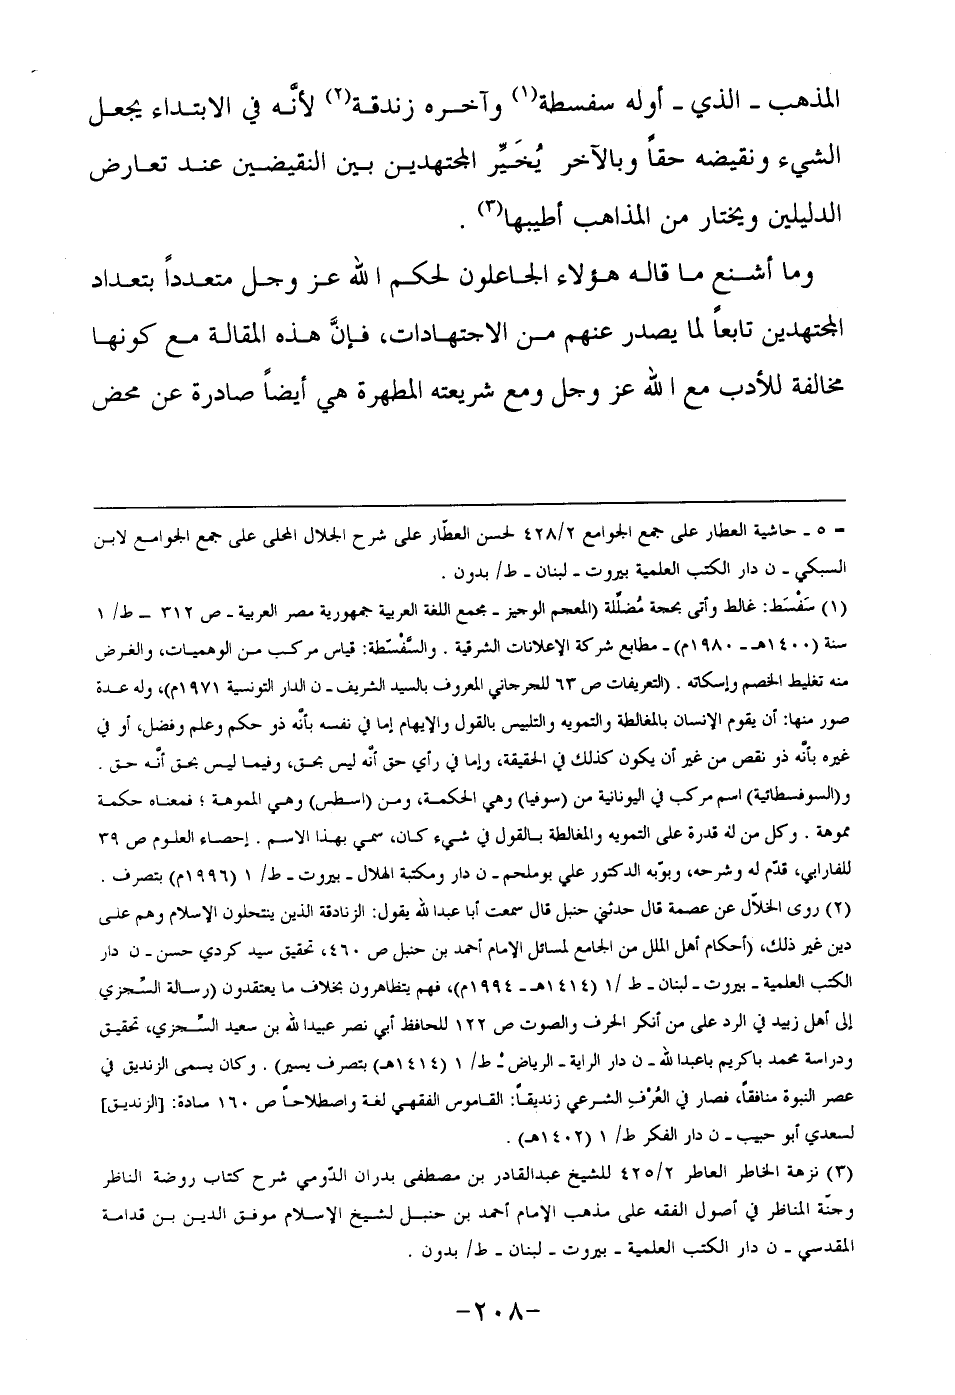 المذهب ـ الذي ـ أوله سفسطة(١) وآخره زندقة(٢) لأنَّه في الابتداء يجعل
الشيء ونقيضه حقاً وبالآخر يُخَيِّر المجتهدين بين النقيضين عند تعارض
الدليلين ويختار من المذاهب أطيبها(٣) .
وما أشنع ما قاله هؤلاء الجاعلون لحكم الله عز وجل متعدداً بتعداد
المجتهدين تابعاً لما يصدر عنهم من الاجتهادات، فإنَّ هذه المقالة مع كونها
مخالفة للأدب مع الله عز وجل ومع شريعته المطهرة هي أيضاً صادرة عن محض
= ٥ ـ حاشية العطار على جمع الجوامع ٤٢٨/٢ لحسن العطّار على شرح الجلال المحلى على جمع الجوامع لابن
السبكي ـ ن دار الكتب العلمية بيروت ـ لبنان ـ ط/ بدون .
(١) سَفْسَط: غالط وأتى بحجة مُضلِّلة (المعجم الوجيز ـ مجمع اللغة العربية جمهورية مصر العربية ـ ص ٣١٢ ـ ط/ ١
سنة (١٤٠٠هـ ـ ١٩٨٠م) ـ مطابع شركة الإعلانات الشرقية . والسَّفْسَطة: قياس مركب من الوهميات، والغرض
منه تغليط الخصم وإسكاته . (التعريفات ص ٦٣ للجرجاني المعروف بالسيد الشريف ـ ن الدار التونسية ١٩٧١م)، وله عدة
صور منها: أن يقوم الإنسان بالمغالطة والتمويه والتلبيس بالقول والإيهام إما في نفسه بأنَّه ذو حكم وعلم وفضل، أو في
غيره بأنَّه ذو نقص من غير أن يكون كذلك في الحقيقة، وإما في رأي حق أنَّه ليس بحق، وفيما ليس بحق أنَّه حق .
و(السوفسطائية) اسم مركب في اليونانية من (سوفيا) وهي الحكمة، ومن (اسطس) وهي المموهة ؛ فمعناه حكمة
مموهة . وكل من له قدرة على التمويه والمغالطة بالقول في شيء كان، سمي بهذا الاسم . إحصاء العلوم ص ٣٩
للفارابي، قدّم له وشرحه، وبوّبه الدكتور علي بوملحم ـ ن دار ومكتبة الهلال ـ بيروت ـ ط/ ١ (١٩٩٦م) بتصرف .
(٢) روى الخلاّل عن عصمة قال حدثني حنبل قال سمعت أبا عبدالله يقول: الزنادقة الذين ينتحلون الإسلام وهم على
دين غير ذلك، (أحكام أهل الملل من الجامع لمسائل الإمام أحمد بن حنبل ص ٤٦٠، تحقيق سيد كردي حسن ـ ن دار
الكتب العلمية ـ بيروت ـ لبنان ـ ط /١ (١٤١٤هـ ـ ١٩٩٤م)، فهم يتظاهرون بخلاف ما يعتقدون (رسالة السِّجزي
إلى أهل زبيد في الرد على من أنكر الحرف والصوت ص ١٢٢ للحافظ أبي نصر عبيدالله بن سعيد السِّجزي، تحقيق
ودراسة محمد باكريم باعبدالله ـ ن دار الراية ـ الرياض ـ ط/ ١ (١٤١٤هـ) بتصرف يسير) . وكان يسمى الزنديق في
عصر النبوة منافقاً، فصار في العُرْفِ الشرعي زنديقاً: القاموس الفقهي لغة واصطلاحاً ص ١٦٠ مادة: [الزنديق]
لسعدي أبو حبيب ـ ن دار الفكر ط/ ١ (١٤٠٢هـ) .
(٣) نزهة الخاطر العاطر ٤٢٥/٢ للشيخ عبدالقادر بن مصطفى بدران الدّومي شرح كتاب روضة الناظر
وجنّة المناظر في أصول الفقه على مذهب الإمام أحمد بن حنبل لشيخ الإسلام موفق الدين بن قدامة
المقدسي ـ ن دار الكتب العلمية ـ بيروت ـ لبنان ـ ط/ بدون .
-٢٠٨-